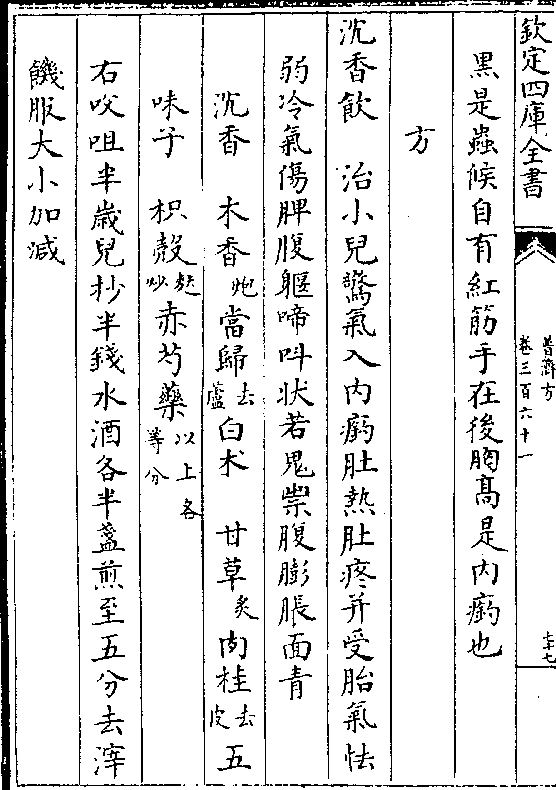 欽定四庫全書
普濟方
卷三百六十一
七十七
黑是蟲候自有紅筋手在後胸高是内瘹也
方
沉香飲　治小兒驚氣入内瘹肚熱肚疼并受胎氣怯
弱冷氣傷脾腹軀啼叫状若鬼祟腹膨脹面青
沉香　木香炮當歸去蘆白术　甘草炙肉桂去皮五
味子　枳殻麩炒赤芍藥以上各等分
右㕮咀半歳兒抄半錢水酒各半盞煎至五分去滓
饑服大小加減